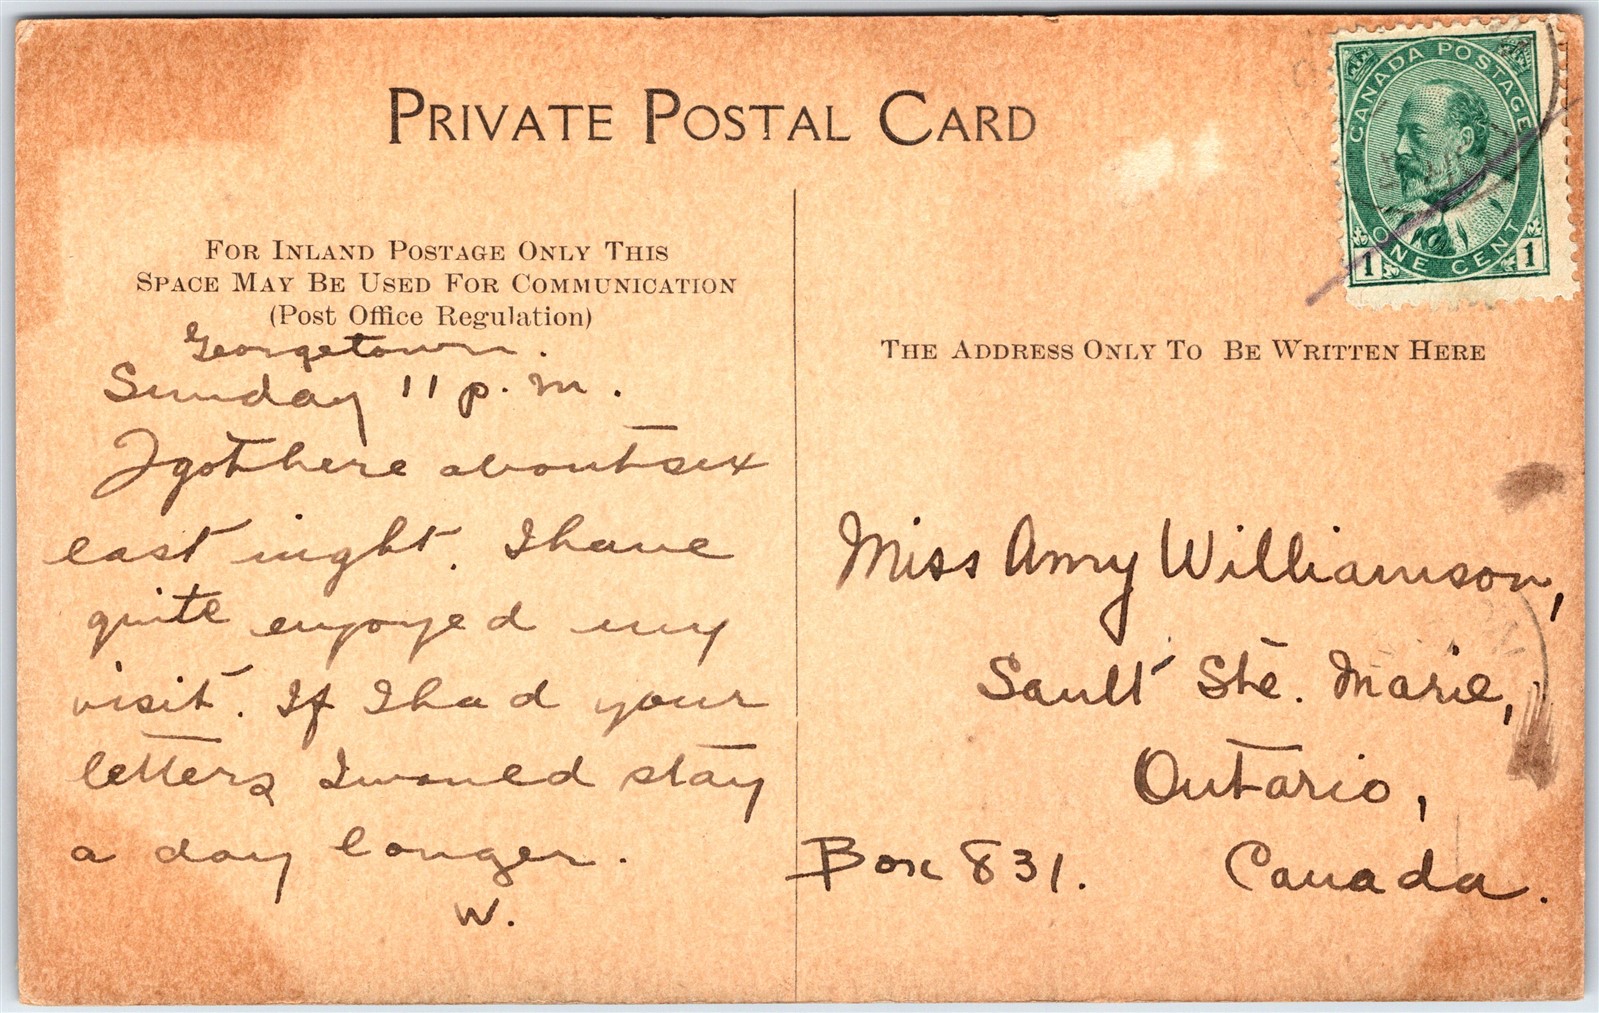 PRIVATE POSTAL CARD
CANADA POSTAGE
ONE CENT
1 1
FOR INLAND POSTAGE ONLY THIS
SPACE MAY BE USED FOR COMMUNICATION
(Post Office Regulation)
Georgetown.
Sunday 11 p.m.
I got here about six
last night. I have
quite enjoyed my
visit. If I had your
letters I would stay
a day longer.
W.
THE ADDRESS ONLY TO BE WRITTEN HERE
Miss Amy Williamson,
Sault Ste. Marie,
Ontario,
Box 831. Canada.